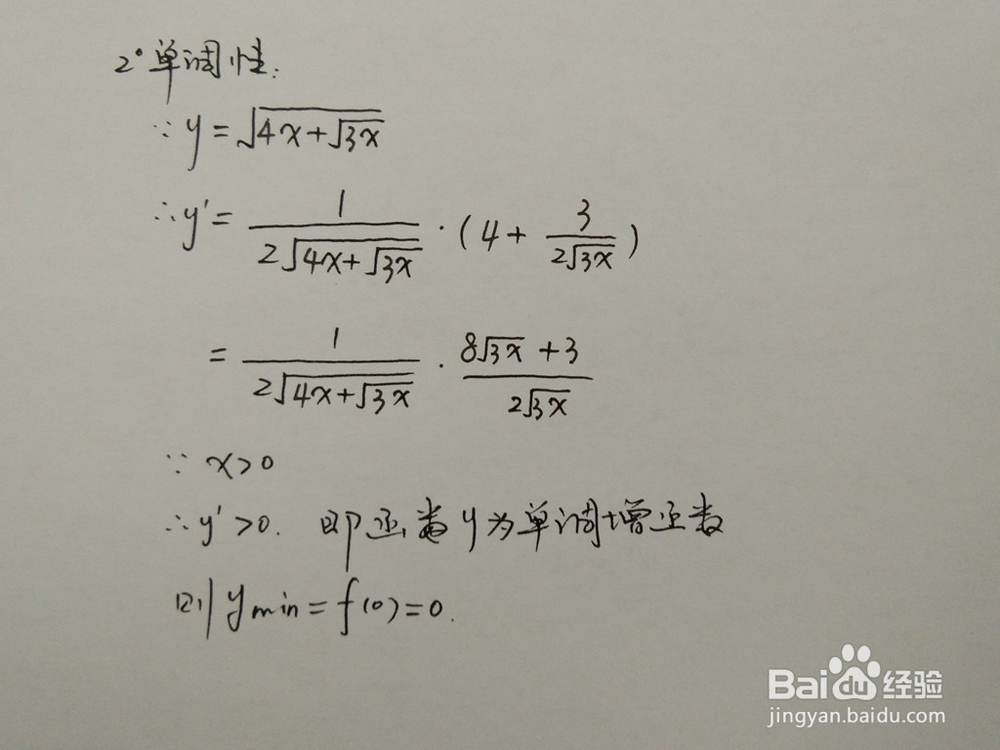 2°单调性:
∵ y = √(4x+√(3x))
∴ y' = 1/(2√(4x+√(3x))) · (4 + 3/(2√(3x)))
= 1/(2√(4x+√(3x))) · (8√(3x) + 3)/(2√(3x))
∵ x>0
∴ y'>0. 即函数y为单调增函数
则 ymin = f(0) = 0.
Baidu 经验
jingyan.baidu.com